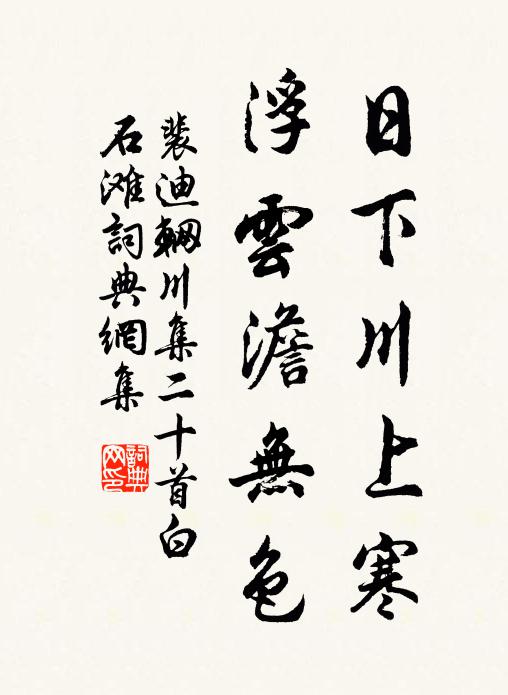 日下川上寒
浮雲澹無色
裴迪輞川集二十首白
石滩詞典網集
詞典
网印